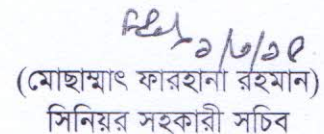 ২/৬/২৫
(মোছাম্মাৎ ফারহানা রহমান)
সিনিয়র সহকারী সচিব